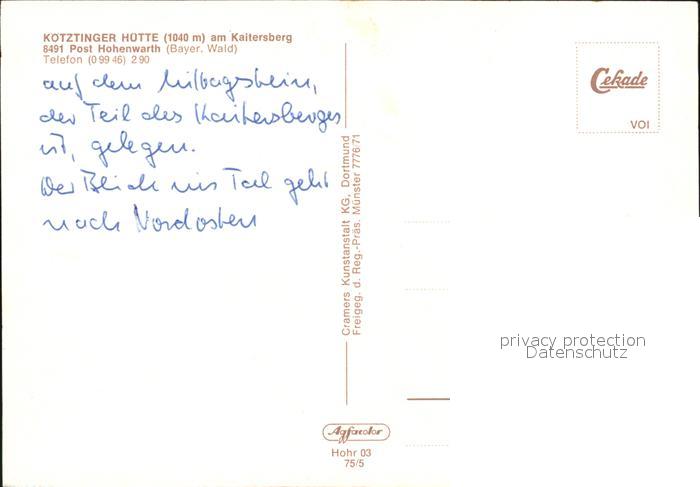 KÖTZTINGER HÜTTE (1040 m) am Kaitersberg
8491 Post Hohenwarth (Bayer. Wald)
Telefon (0 99 46) 2 90
auf dem Mittagstein,
der Teil des Kaitersberges
ist, gelegen.
Der Blick ins Tal geht
nach Nordosten
Cramers Kunstanstalt KG, Dortmund
Freigeg. d. Reg.-Präs. Münster 7776/71
Cekade
VOI
privacy protection
Datenschutz
Agfacolor
Hohr 03
75/5